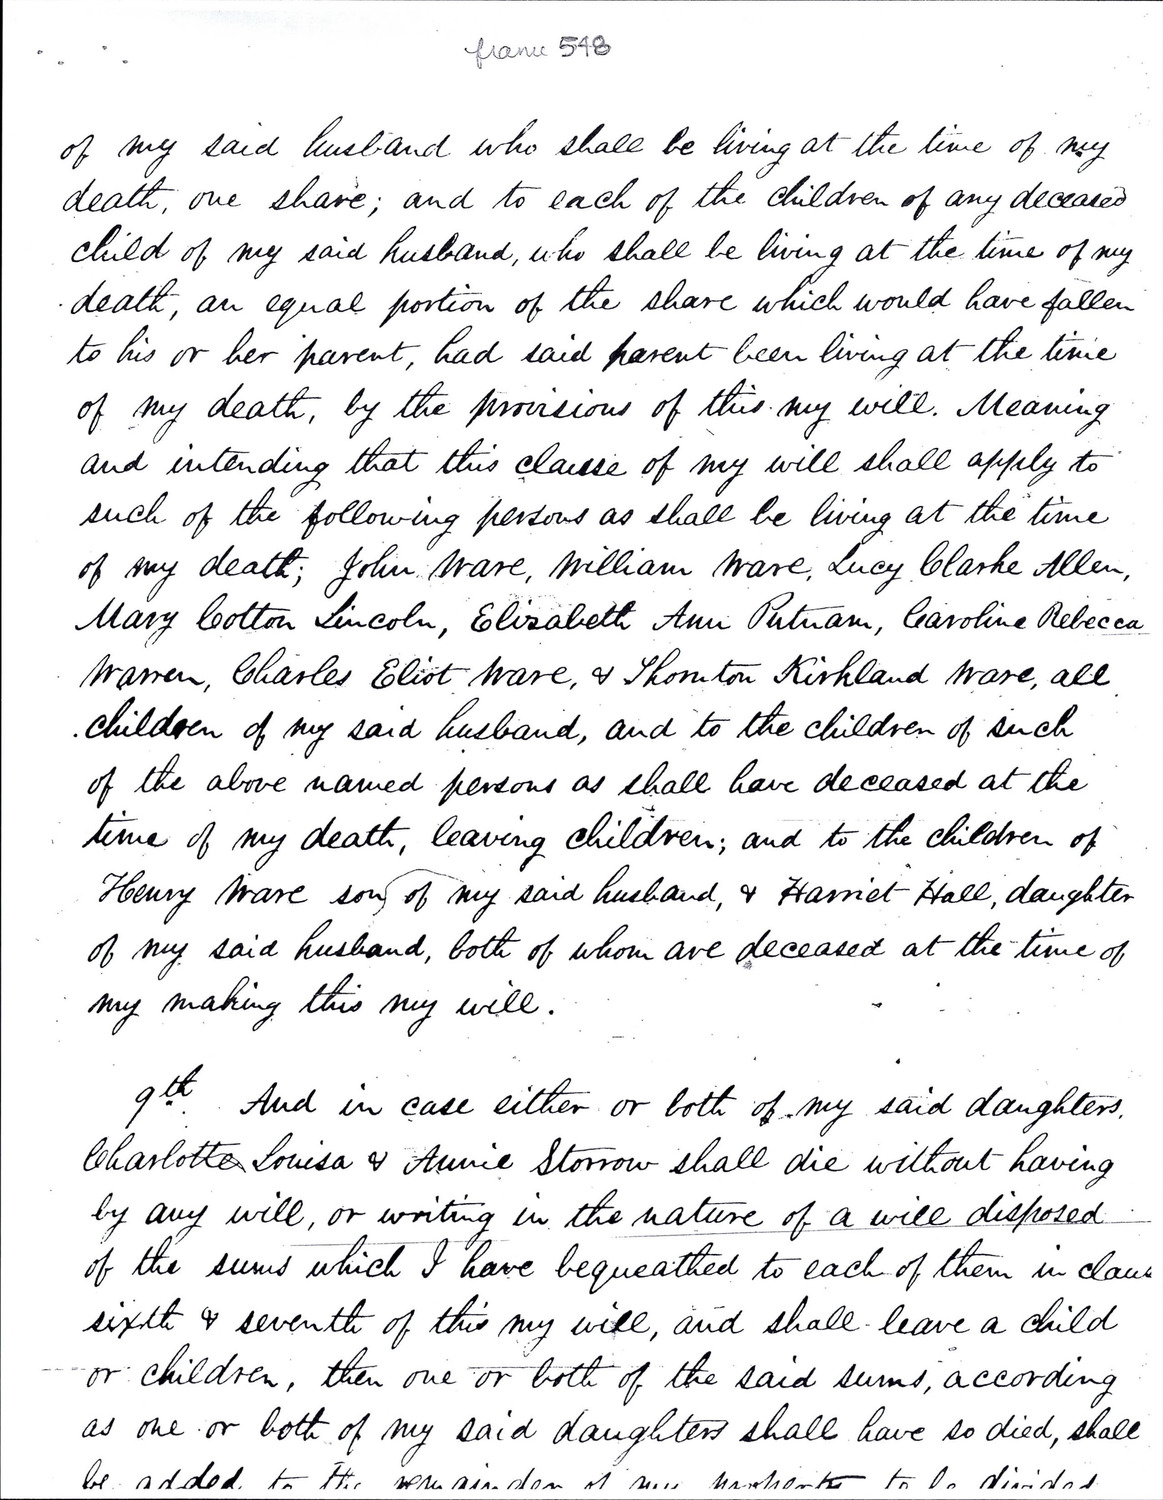 frame 548
of my said husband who shall be living at the time of my
death, one share; and to each of the children of any deceased
child of my said husband, who shall be living at the time of my
death, an equal portion of the share which would have fallen
to his or her parent, had said parent been living at the time
of my death, by the provisions of this my will. Meaning
and intending that this clause of my will shall apply to
such of the following persons as shall be living at the time
of my death; John Ware, William Ware, Lucy Clarke Allen,
Mary Cotton Lincoln, Elizabeth Ann Putnam, Caroline Rebecca
Warren, Charles Eliot Ware, & Thornton Kirkland Ware, all
children of my said husband, and to the children of such
of the above named persons as shall have deceased at the
time of my death, leaving children; and to the children of
Henry Ware son of my said husband, & Harriet Hall, daughter
of my said husband, both of whom are deceased at the time of
my making this my will.
9th. And in case either or both of my said daughters,
Charlotte Louisa & Annie Storrow shall die without having
by any will, or writing in the nature of a will disposed
of the sums which I have bequeathed to each of them in claus
sixth & seventh of this my will, and shall leave a child
or children, then one or both of the said sums, according
as one or both of my said daughters shall have so died, shall
be added to the remainder of my property to be divided